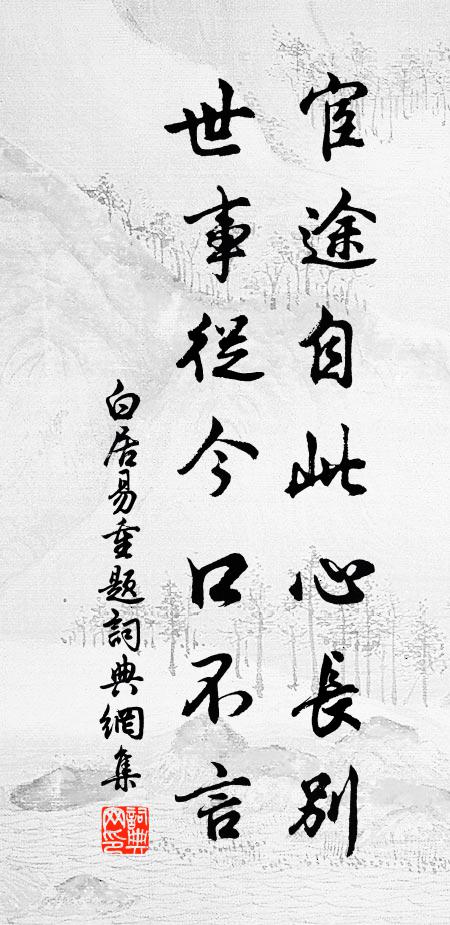 宦途自此心長別
世事從今口不言
白居易重題詞典網集
詞典網印